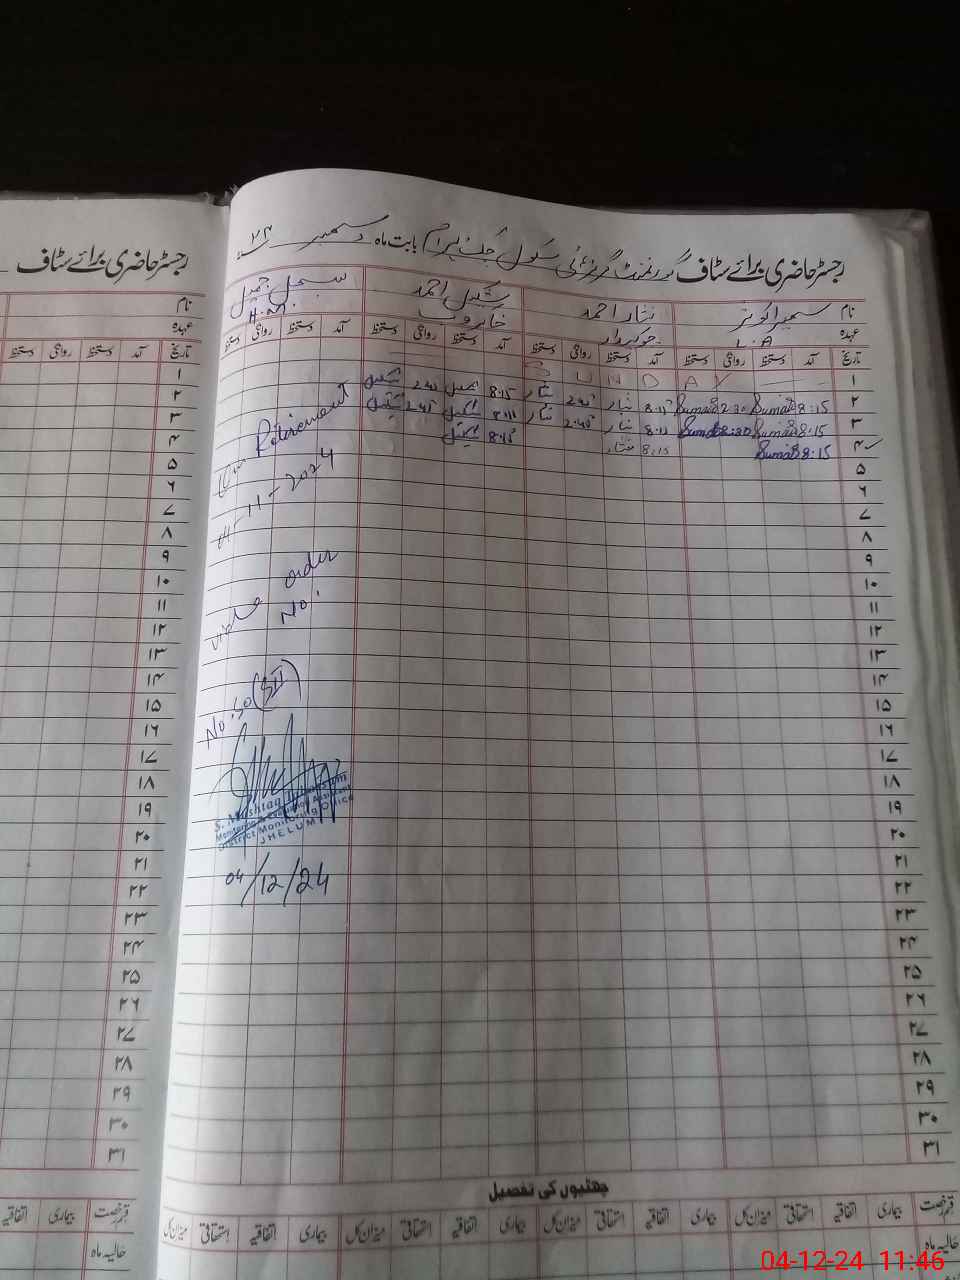 رجسٹر حاضری برائے سٹاف گورنمنٹ گرلز ہائی سکول بابت ماہ دسمبر ۲۴
نام سمیرا کوثر نثار احمد شکیل احمد سجل جمیل
عہدہ L.A چوکیدار خاکروب H.M
تاریخ آمد دستخط روانگی دستخط آمد دستخط روانگی دستخط آمد دستخط روانگی دستخط آمد دستخط روانگی دستخط
۱ S U N D A Y
۲ 8:15 Sumaira 2:30 Sumaira 8:15 نثار 2:45 نثار 8:15 شکیل 2:45 شکیل
۳ 8:15 Sumaira 2:30 Sumaira 8:11 نثار 2:45 نثار 8:11 شکیل 2:45 شکیل
۴ 8:15 Sumaira 8:15 نثار 8:15 شکیل
۵
۶
۷
۸
۹
۱۰
۱۱
۱۲
۱۳
۱۴
۱۵
۱۶
۱۷
۱۸
۱۹
۲۰
۲۱
۲۲
۲۳
۲۴
۲۵
۲۶
۲۷
۲۸
۲۹
۳۰
۳۱
Retirement
04-11-2024
vide order
No:
No. SO(SII)
S. Mushtaq
Monitoring & Evaluation Assistant
District Monitoring Office
JHELUM
04/12/24
چھٹیوں کی تفصیل
قسم رخصت بیماری اتفاقیہ استحقاقی میزان کل بیماری اتفاقیہ استحقاقی میزان کل بیماری اتفاقیہ استحقاقی میزان کل بیماری اتفاقیہ استحقاقی میزان کل
حالیہ ماہ
رجسٹر حاضری برائے سٹاف
نام
عہدہ
تاریخ آمد دستخط روانگی دستخط
۱
۲
۳
۴
۵
۶
۷
۸
۹
۱۰
۱۱
۱۲
۱۳
۱۴
۱۵
۱۶
۱۷
۱۸
۱۹
۲۰
۲۱
۲۲
۲۳
۲۴
۲۵
۲۶
۲۷
۲۸
۲۹
۳۰
۳۱
قسم رخصت بیماری اتفاقیہ
حالیہ ماہ
04-12-24 11:46